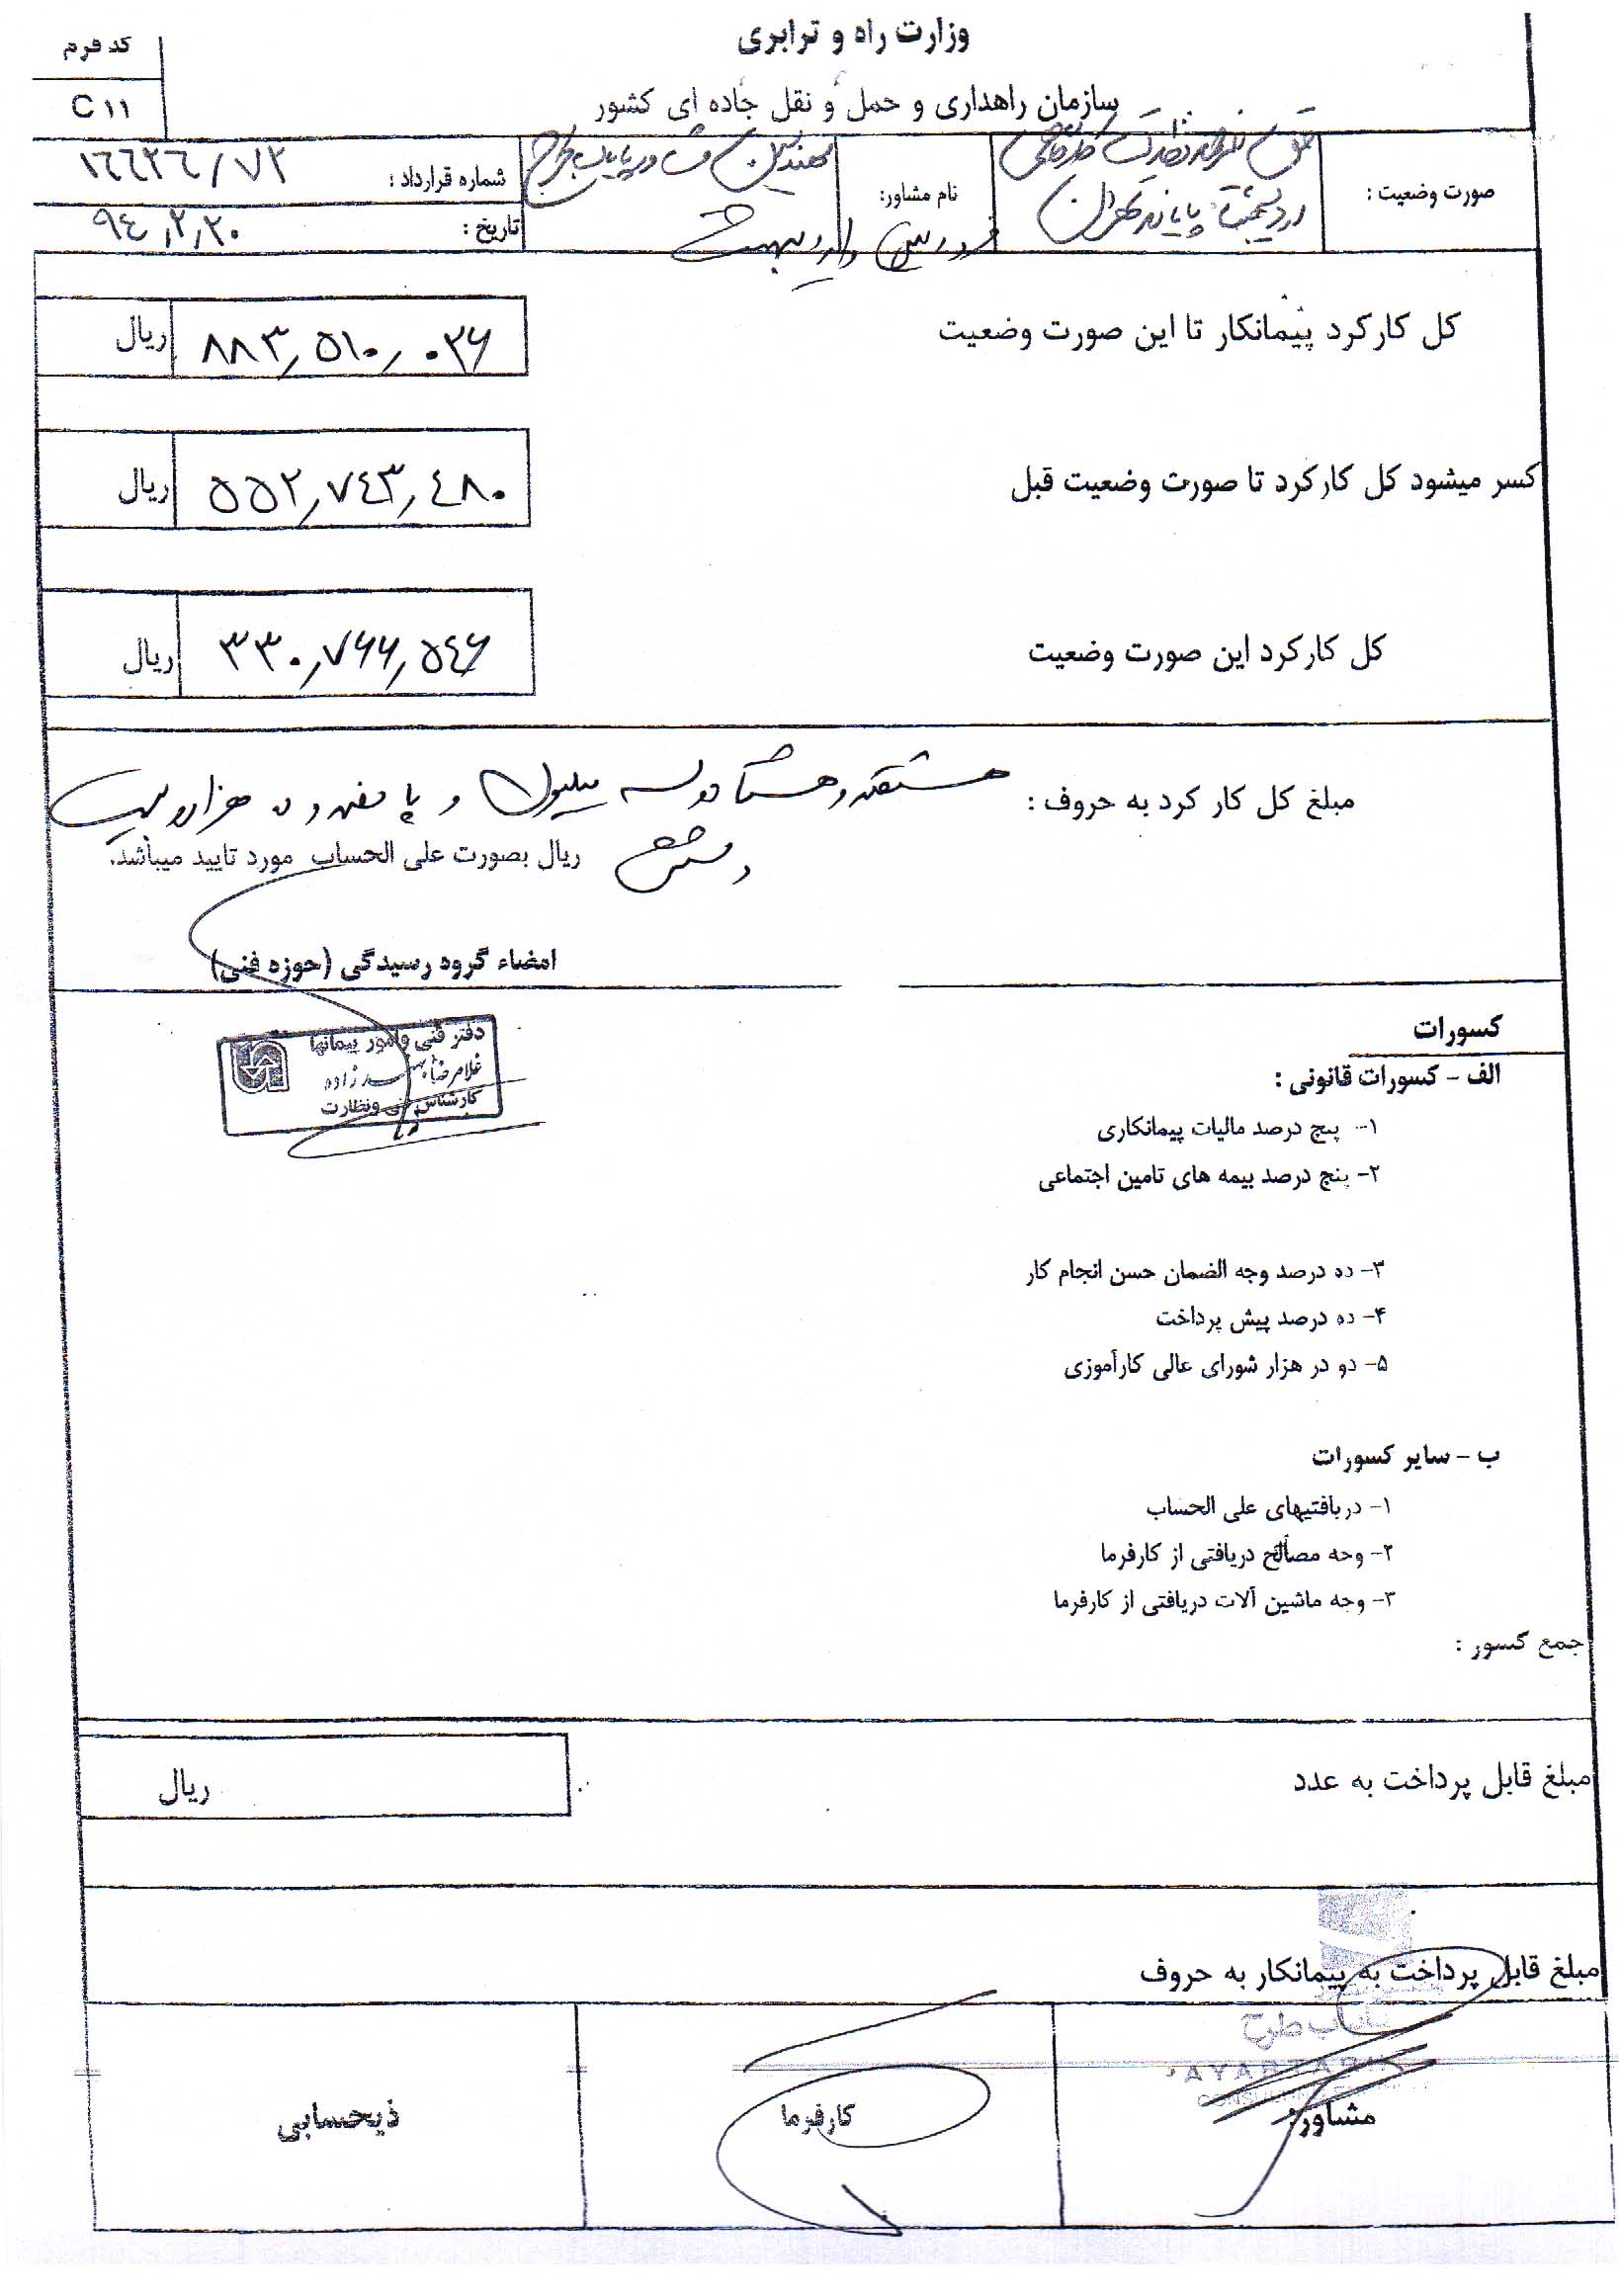 وزارت راه و ترابری
سازمان راهداری و حمل و نقل جاده ای کشور
کد فرم
C ۱۱
صورت وضعیت :
نام مشاور:
مهندسین مشاور پایاب طرح
فروردین و اردیبهشت
شماره قرارداد : ۱٦٦۲٦/۷۲
تاریخ : ۹٤,۲,۲۰
کل کارکرد پیمانکار تا این صورت وضعیت ۸۸۳,۵۱۰,۰۲۶ ریال
کسر میشود کل کارکرد تا صورت وضعیت قبل ۵۵۲,۷٤۳,٤۸۰ ریال
کل کارکرد این صورت وضعیت ۳۳۰,۷۶۶,۵٤۶ ریال
مبلغ کل کار کرد به حروف : هشتصد و هشتاد و سه میلیون و پانصد و ده هزار و بیست
و شش ریال بصورت علی الحساب مورد تایید میباشد.
امضاء گروه رسیدگی (حوزه فنی)
دفتر فنی وامور پیمانها
غلامرضا
کارشناس فنی ونظارت
کسورات
الف - کسورات قانونی :
۱- پنج درصد مالیات پیمانکاری
۲- پنج درصد بیمه های تامین اجتماعی
۳- ده درصد وجه الضمان حسن انجام کار
۴- ده درصد پیش پرداخت
۵- دو در هزار شورای عالی کارآموزی
ب - سایر کسورات
۱- دریافتیهای علی الحساب
۲- وجه مصالح دریافتی از کارفرما
۳- وجه ماشین آلات دریافتی از کارفرما
جمع کسور :
مبلغ قابل پرداخت به عدد
ریال
مبلغ قابل پرداخت به پیمانکار به حروف
پایاب طرح
مشاور:
کارفرما
ذیحسابی